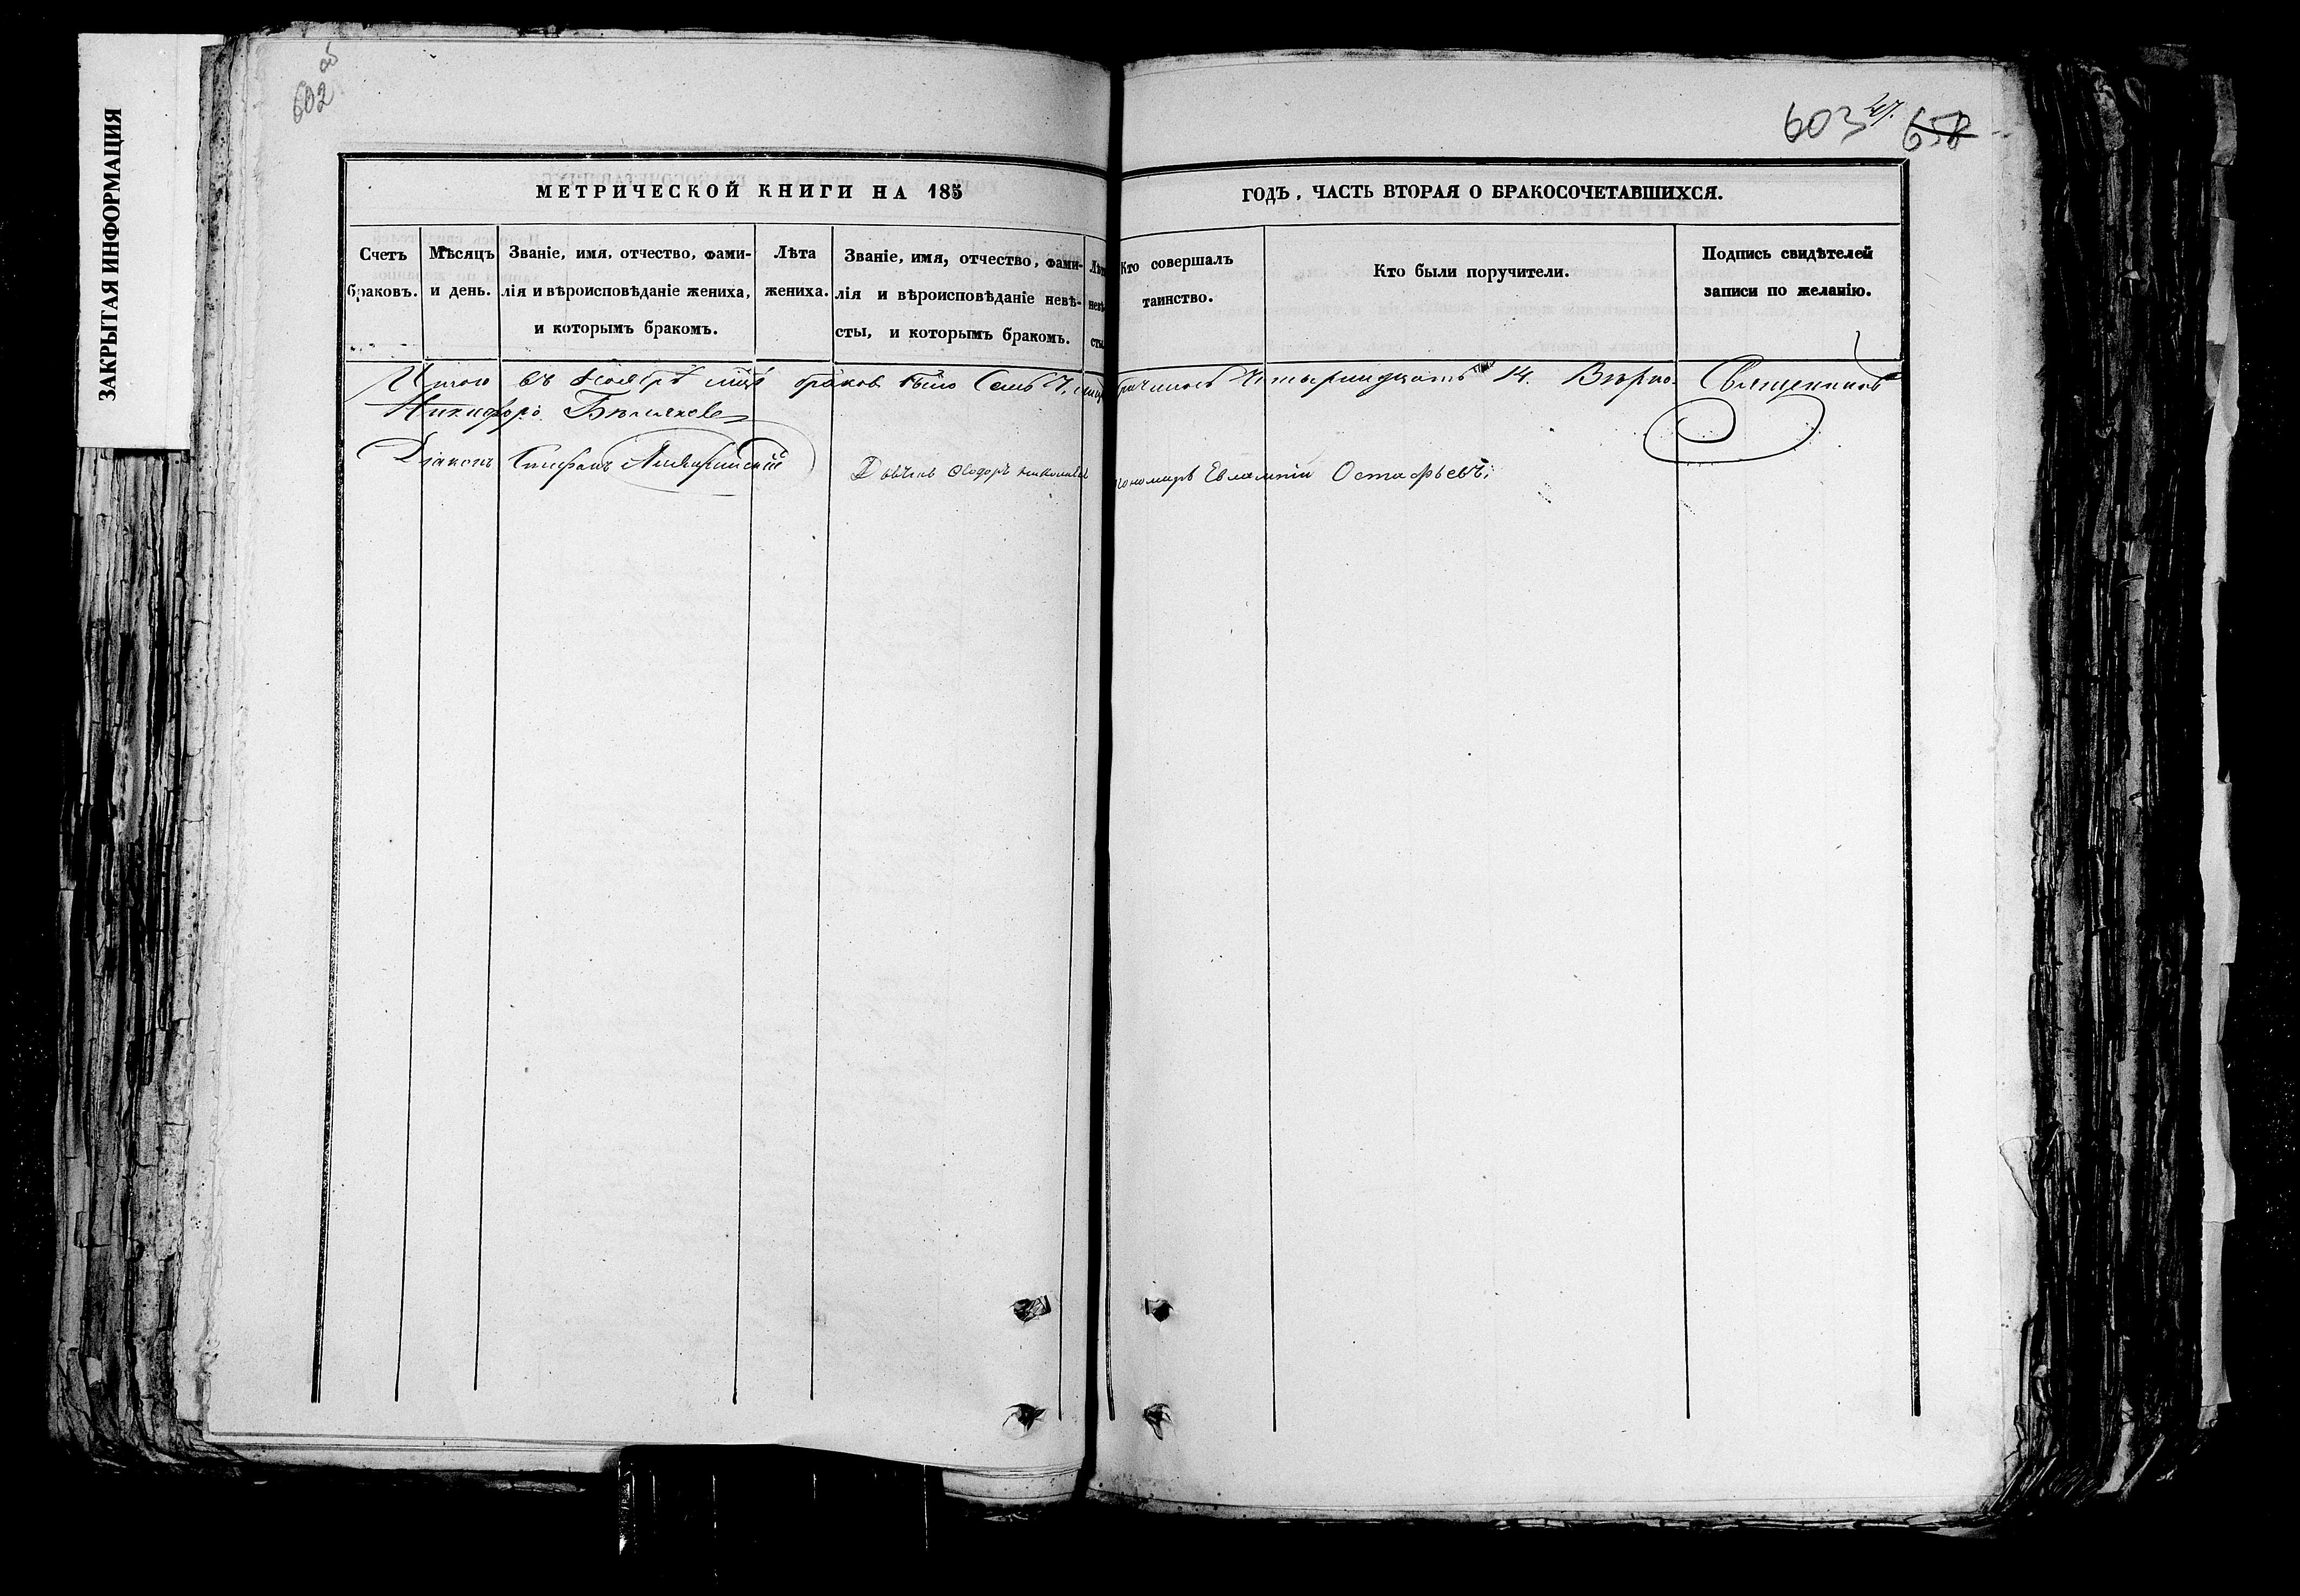 ЗАКРЫТАЯ ИНФОРМАЦИЯ
602 об
603 658
МЕТРИЧЕСКОЙ КНИГИ НА 185 ГОДЪ, ЧАСТЬ ВТОРАЯ О БРАКОСОЧЕТАВШИХСЯ.
Счетъ
браковъ.
Мѣсяцъ
и день.
Званіе, имя, отчество, фами-
лія и вѣроисповѣданіе жениха,
и которымъ бракомъ.
Лѣта
жениха.
Званіе, имя, отчество, фами-
лія и вѣроисповѣданіе невѣ-
сты, и которымъ бракомъ.
Лѣта
невѣ-
сты.
Кто совершалъ
таинство.
Кто были поручители.
Подпись свидѣтелей
записи по желанію.
Итого въ Ноябрѣ мцѣ браковъ было Семь 7, четырнадцать 14. Вѣрно. Священникъ
Никифоръ
Діаконъ Стефанъ
Дьячекъ Ѳеодоръ Николаевъ Пономарь Евлампій Остафьевъ.